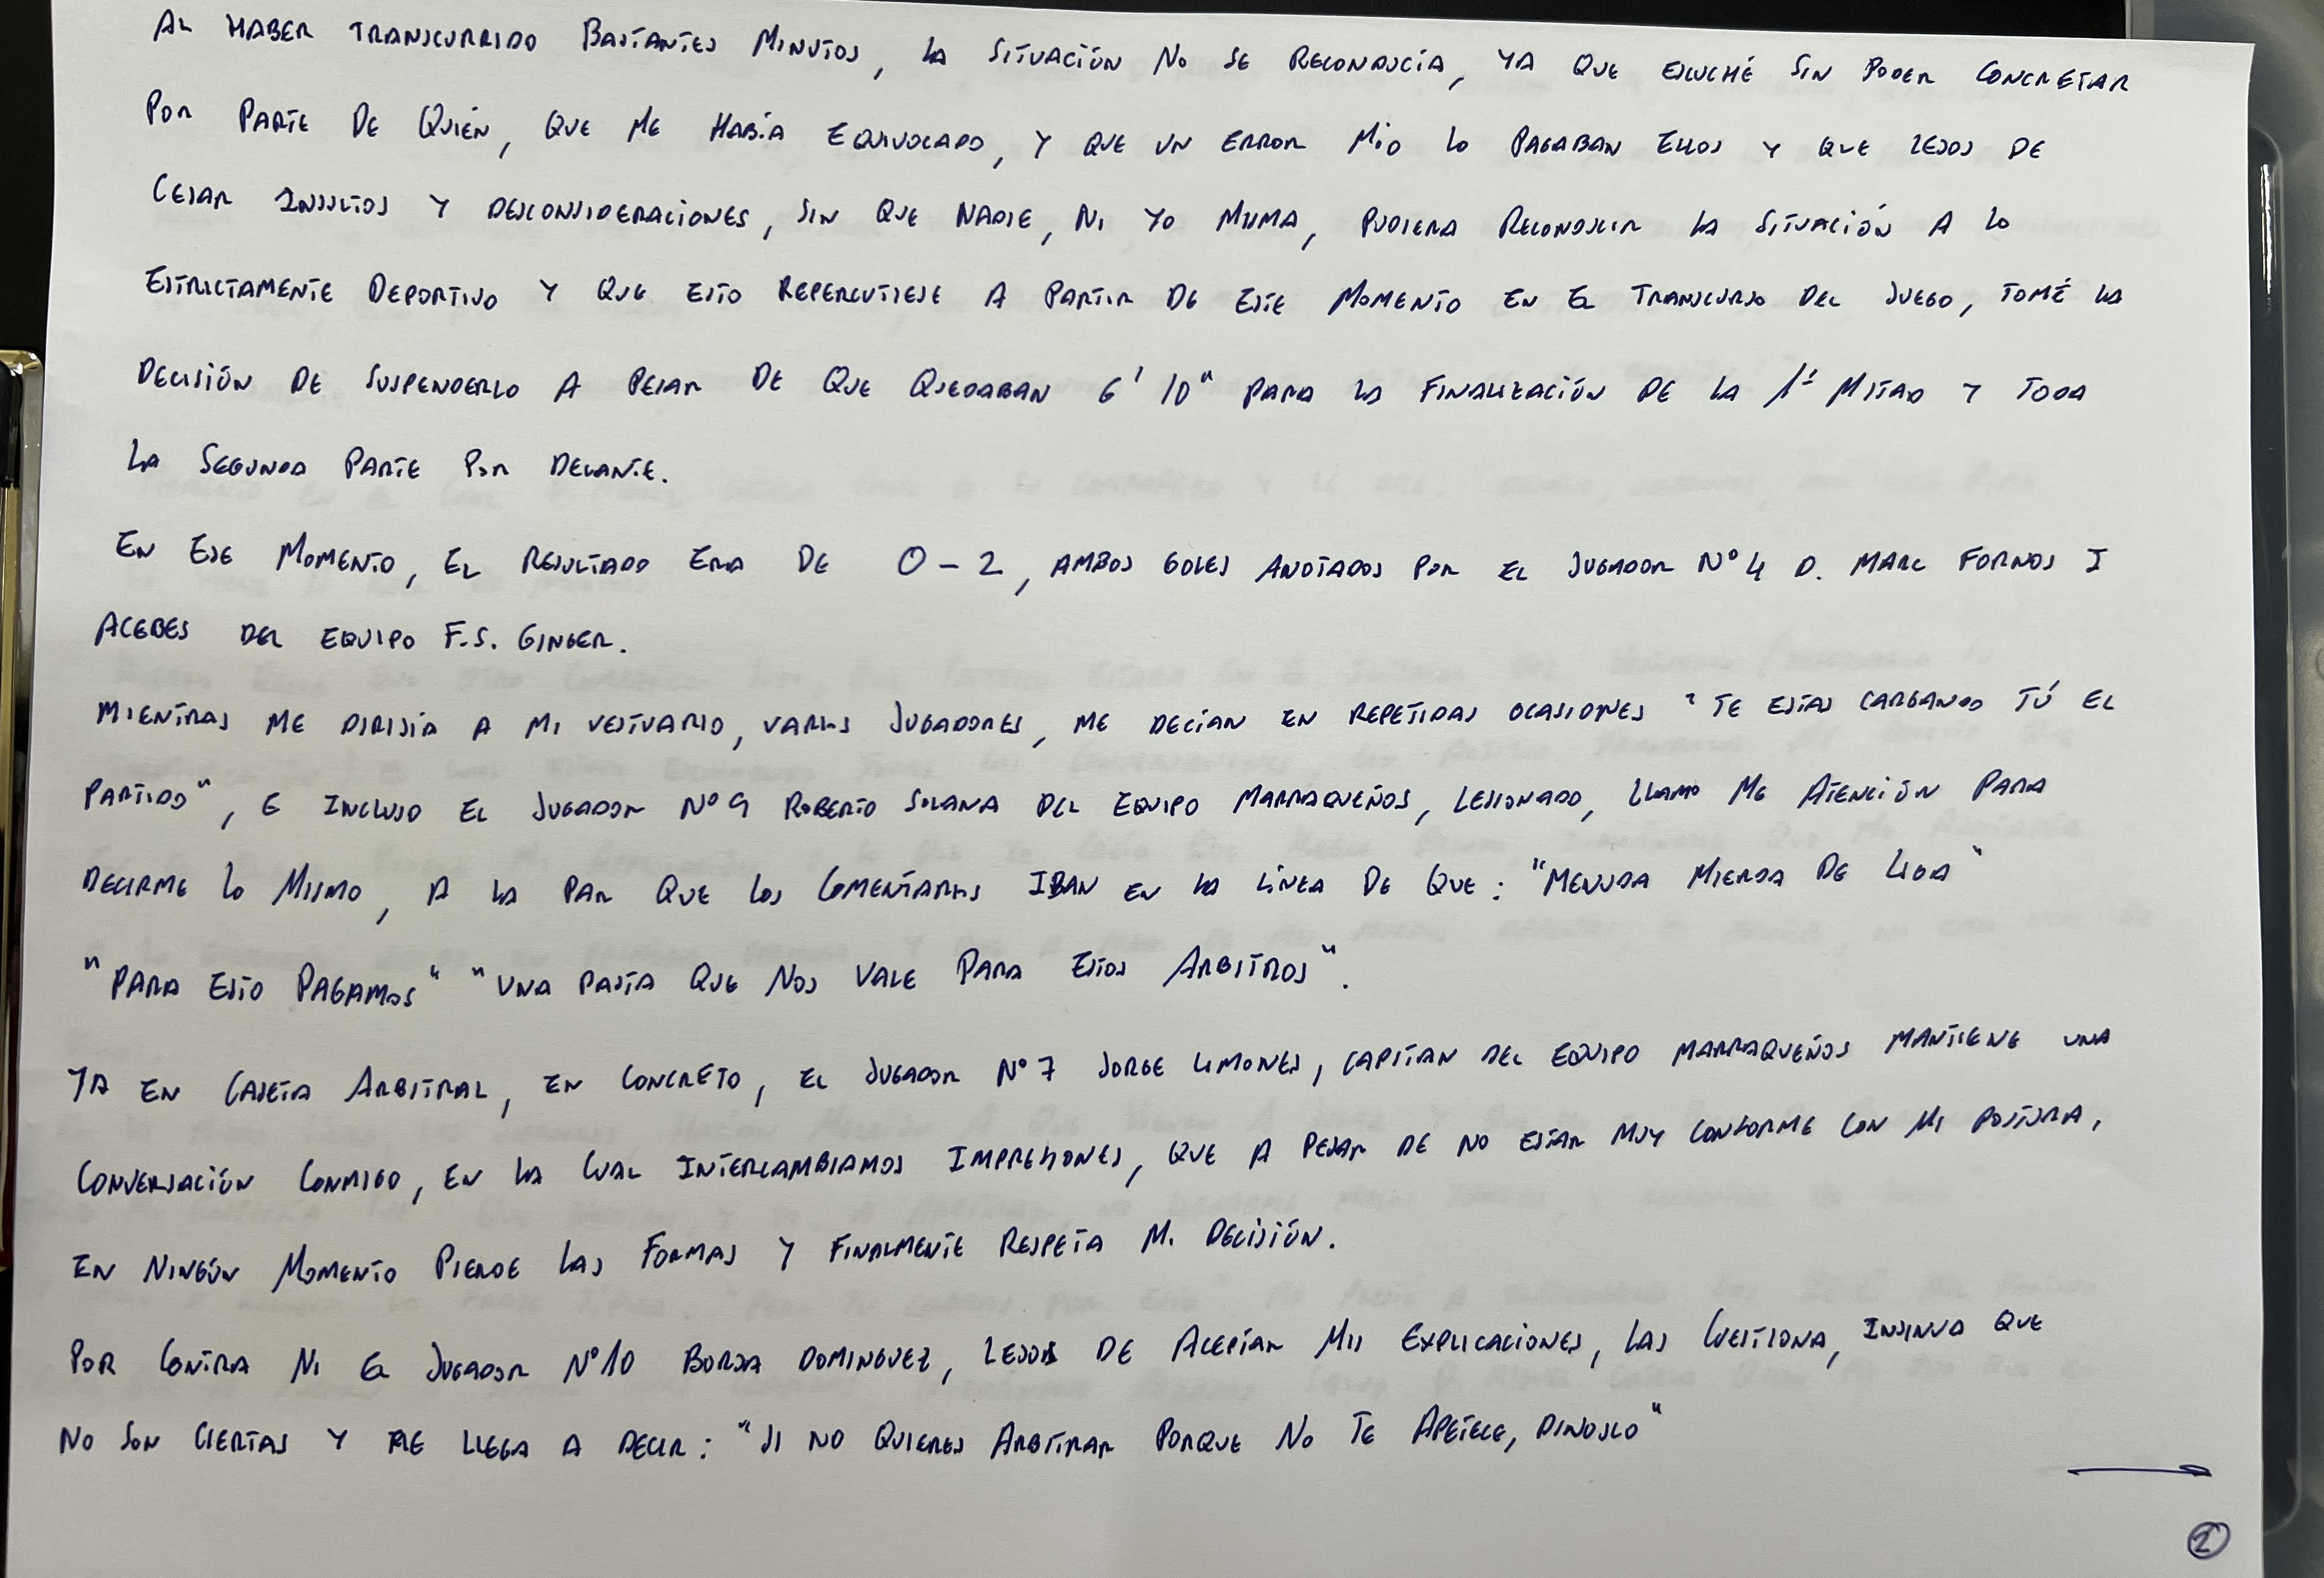 AL HABER TRANSCURRIDO BASTANTES MINUTOS, LA SITUACIÓN NO SE RECONDUCÍA, YA QUE ESCUCHÉ SIN PODER CONCRETAR
POR PARTE DE QUIÉN, QUE ME HABÍA EQUIVOCADO, Y QUE UN ERROR MIO LO PAGABAN ELLOS Y QUE LEJOS DE
CESAR INSULTOS Y DESCONSIDERACIONES, SIN QUE NADIE, NI YO MISMA, PUDIERA RECONDUCIR LA SITUACIÓN A LO
ESTRICTAMENTE DEPORTIVO Y QUE ESTO REPERCUTIESE A PARTIR DE ESTE MOMENTO EN EL TRANSCURSO DEL JUEGO, TOMÉ LA
DECISIÓN DE SUSPENDERLO A PESAR DE QUE QUEDABAN 6' 10" PARA LA FINALIZACIÓN DE LA 1ª MITAD Y TODA
LA SEGUNDA PARTE POR DELANTE.
EN ESE MOMENTO, EL RESULTADO ERA DE 0-2, AMBOS GOLES ANOTADOS POR EL JUGADOR Nº 4 D. MARC FORNOS I
ACEBES DEL EQUIPO F.S. GINGER.
MIENTRAS ME DIRIJÍA A MI VESTUARIO, VARIOS JUGADORES, ME DECÍAN EN REPETIDAS OCASIONES "TE ESTAS CARGANDO TÚ EL
PARTIDO", E INCLUSO EL JUGADOR Nº 9 ROBERTO SOLANA DEL EQUIPO MARRAQUEÑOS, LESIONADO, LLAMO MG ATENCIÓN PARA
DECIRME LO MISMO, A LA PAR QUE LOS COMENTARIOS IBAN EN LA LÍNEA DE QUE: "MENUDA MIERDA DE LIGA"
"PARA ESTO PAGAMOS" "UNA PASTA QUE NOS VALE PARA ESTOS ARBITROS".
YA EN CASETA ARBITRAL, EN CONCRETO, EL JUGADOR Nº 7 JORGE LIMONES, CAPITAN DEL EQUIPO MARRAQUEÑOS MANTIENE UNA
CONVERSACIÓN CONMIGO, EN LA CUAL INTERCAMBIAMOS IMPRESIONES, QUE A PESAR DE NO ESTAR MUY CONFORME CON MI POSTURA,
EN NINGÚN MOMENTO PIERDE LAS FORMAS Y FINALMENTE RESPETA MI DECISIÓN.
POR CONTRA NI EL JUGADOR Nº 10 BORJA DOMINGUEZ, LEJOS DE ACEPTAR MIS EXPLICACIONES, LAS CUESTIONA, INSINUA QUE
NO SON CIERTAS Y ME LLEGA A DECIR: "SI NO QUIERES ARBITRAR PORQUE NO TE APETECE, DINOSLO"
2